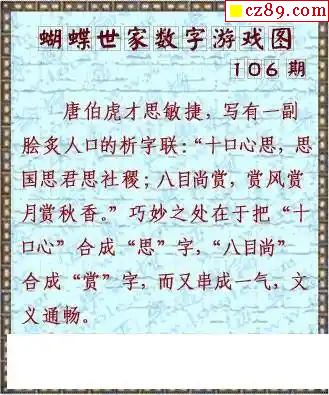 cz89.com
蝴蝶世家数字游戏图
106期
唐伯虎才思敏捷，写有一副
脍炙人口的析字联：“十口心思，思
国思君思社稷；八目尚赏，赏风赏
月赏秋香。”巧妙之处在于把“十
口心”合成“思”字，“八目尚”
合成“赏”字，而又串成一气，文
义通畅。